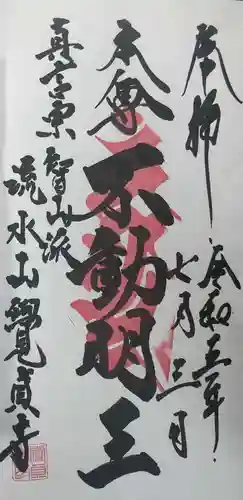 奉拝
令和五年
七月三日
本尊
不動明王
真言宗
智山派
流水山覺貞寺